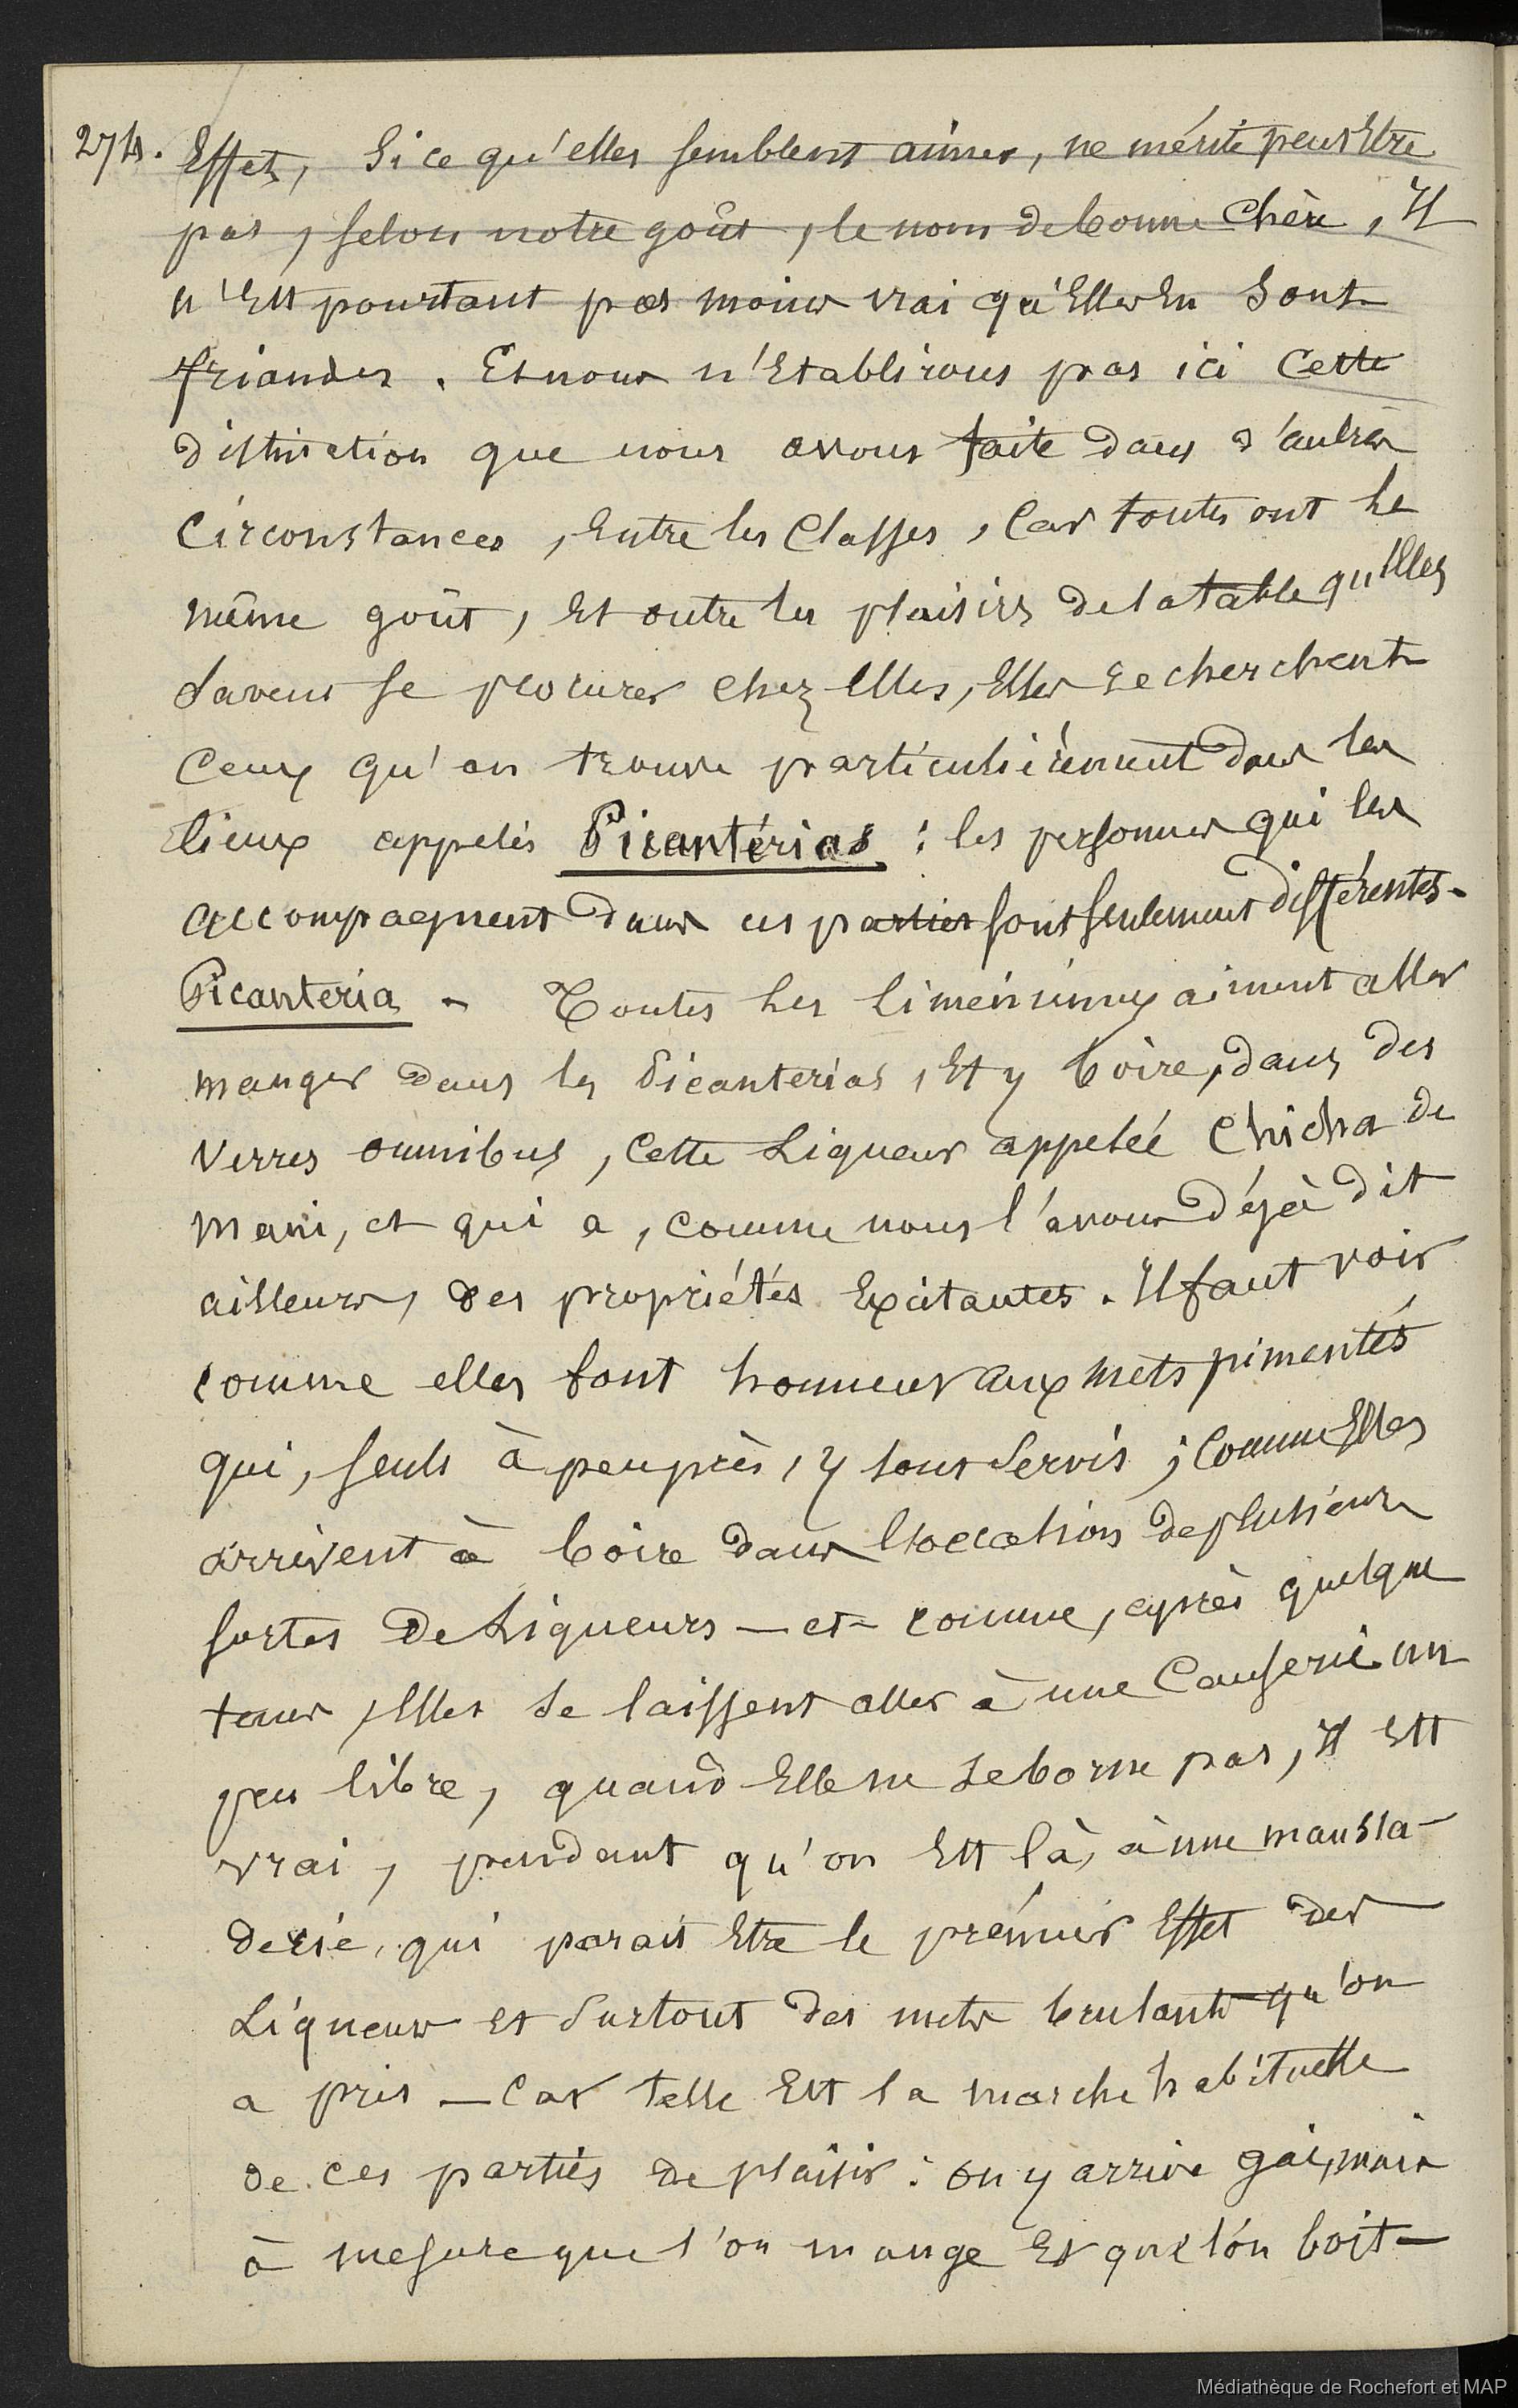 274. Effet, Si ce qu'elles semblent aimer, ne mérite peut Etre
pas, selon notre goût, le nom de bonne Chère, Il
n'Est pourtant pas moins vrai qu'Elles En Sont
friandes. Et nous n'Etablirons pas ici Cette
distinction que nous avons faite dans d'autres
Circonstances, Entre les Classes, Car toutes ont le
même goût, Et outre les plaisirs de la table qu'Elles
Savent se procurer chez Elles, Elles recherchent
Ceux qu'on trouve particulièrement dans les
lieux appelés Picantérias : les personnes qui les
accompagnent dans ces parties sont seulement différentes -
Picanteria - Toutes les Liméniennes aiment aller
manger dans les Picanterias, Et y boire, dans des
verres omnibus, Cette Liqueur appelée Chicha de
Mani, et qui a, comme nous l'avons Déjà dit
ailleurs, des propriétés Excitantes. Il faut voir
comme elles font honneur aux mets pimentés
qui, seuls à peu près, y sont Servis ; Comme Elles
arrivent à boire dans l'occasion de plusieurs
sortes de Liqueurs — et - comme, après quelque
tems, Elles se laissent aller à une Causerie un
peu libre, quand Elle ne se borne pas, Il Est
vrai, pendant qu'on Est là, à une maussa-
derie, qui parait Etre le prémier Effet des
Liqueurs et Surtout des mets brulants qu'on
a pris — Car telle Est la marche habituelle
de ces parties de plaisir : on y arrive gai, mais
à mesure que l'on mange Et que l'on boit -
Médiathèque de Rochefort et MAP